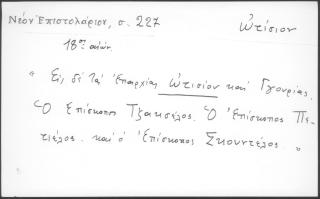 Νέον Ἐπιστολάριον, σ. 227
ὠτίσιον
18ος αἰών.
" Εἰς δὲ τὰ ἐπαρχίας ὠτισίον καὶ Γγουρίας.
Ὁ Ἐπίσκοπος Τζακσέλος. Ὁ Ἐπίσκοπος Πε-
τιέλος. καὶ ὁ Ἐπίσκοπος Σκουντέλος. "